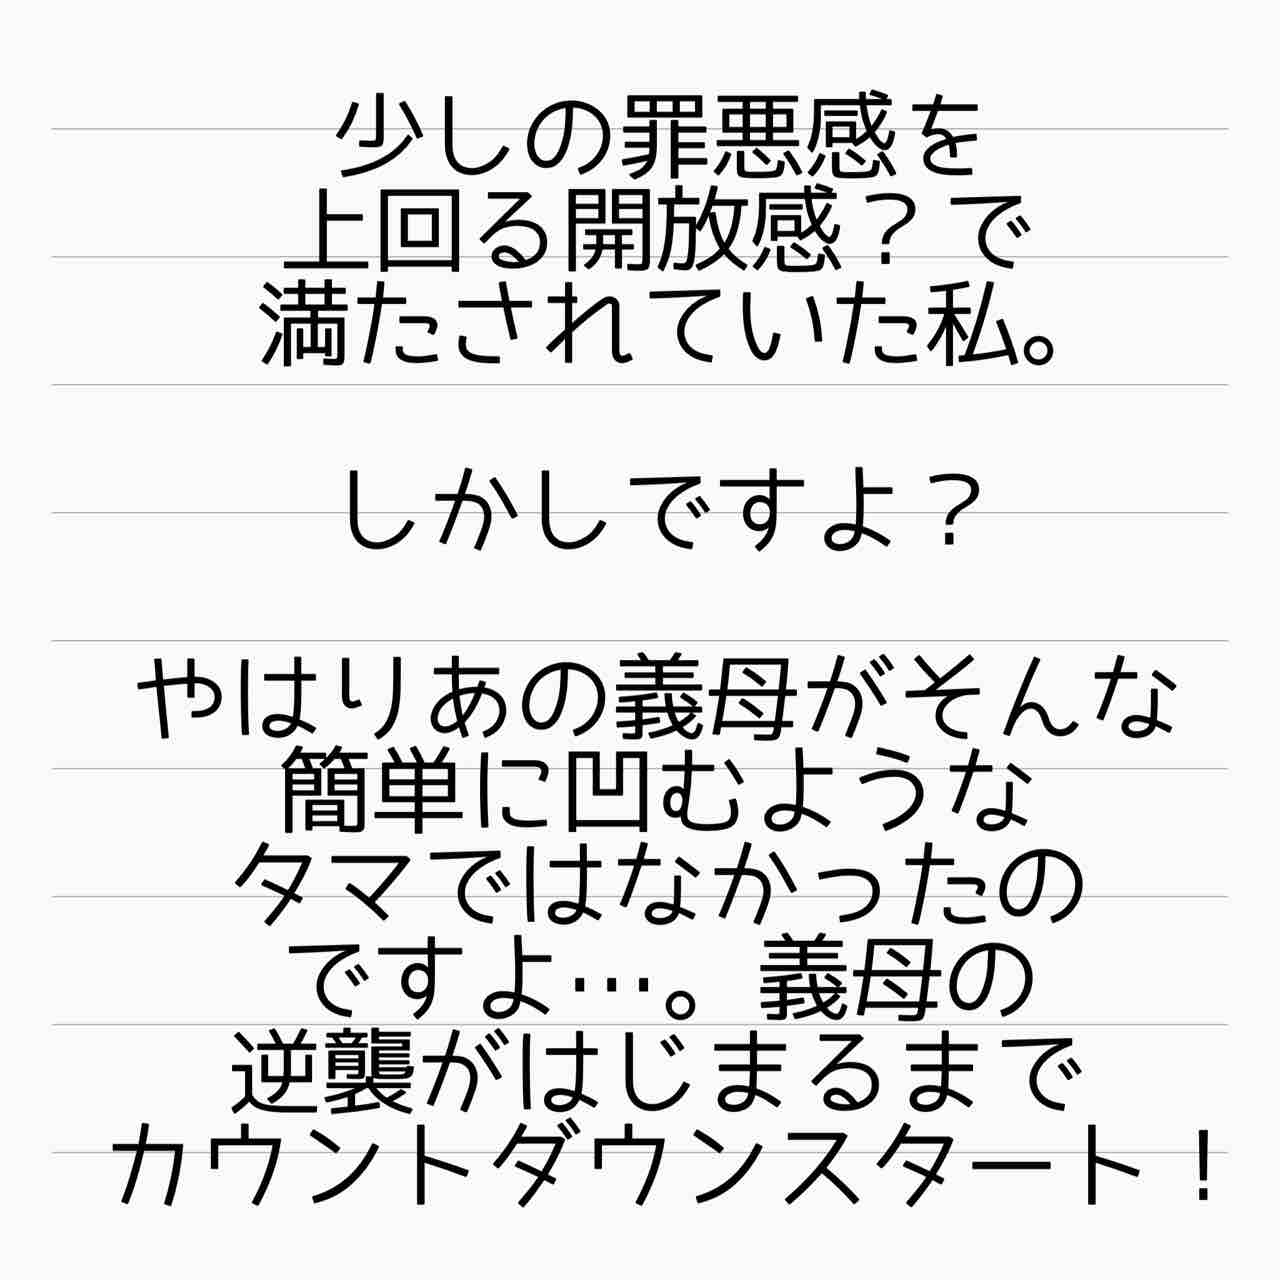 少しの罪悪感を
上回る開放感？で
満たされていた私。
しかしですよ？
やはりあの義母がそんな
簡単に凹むような
タマではなかったの
ですよ…。義母の
逆襲がはじまるまで
カウントダウンスタート！